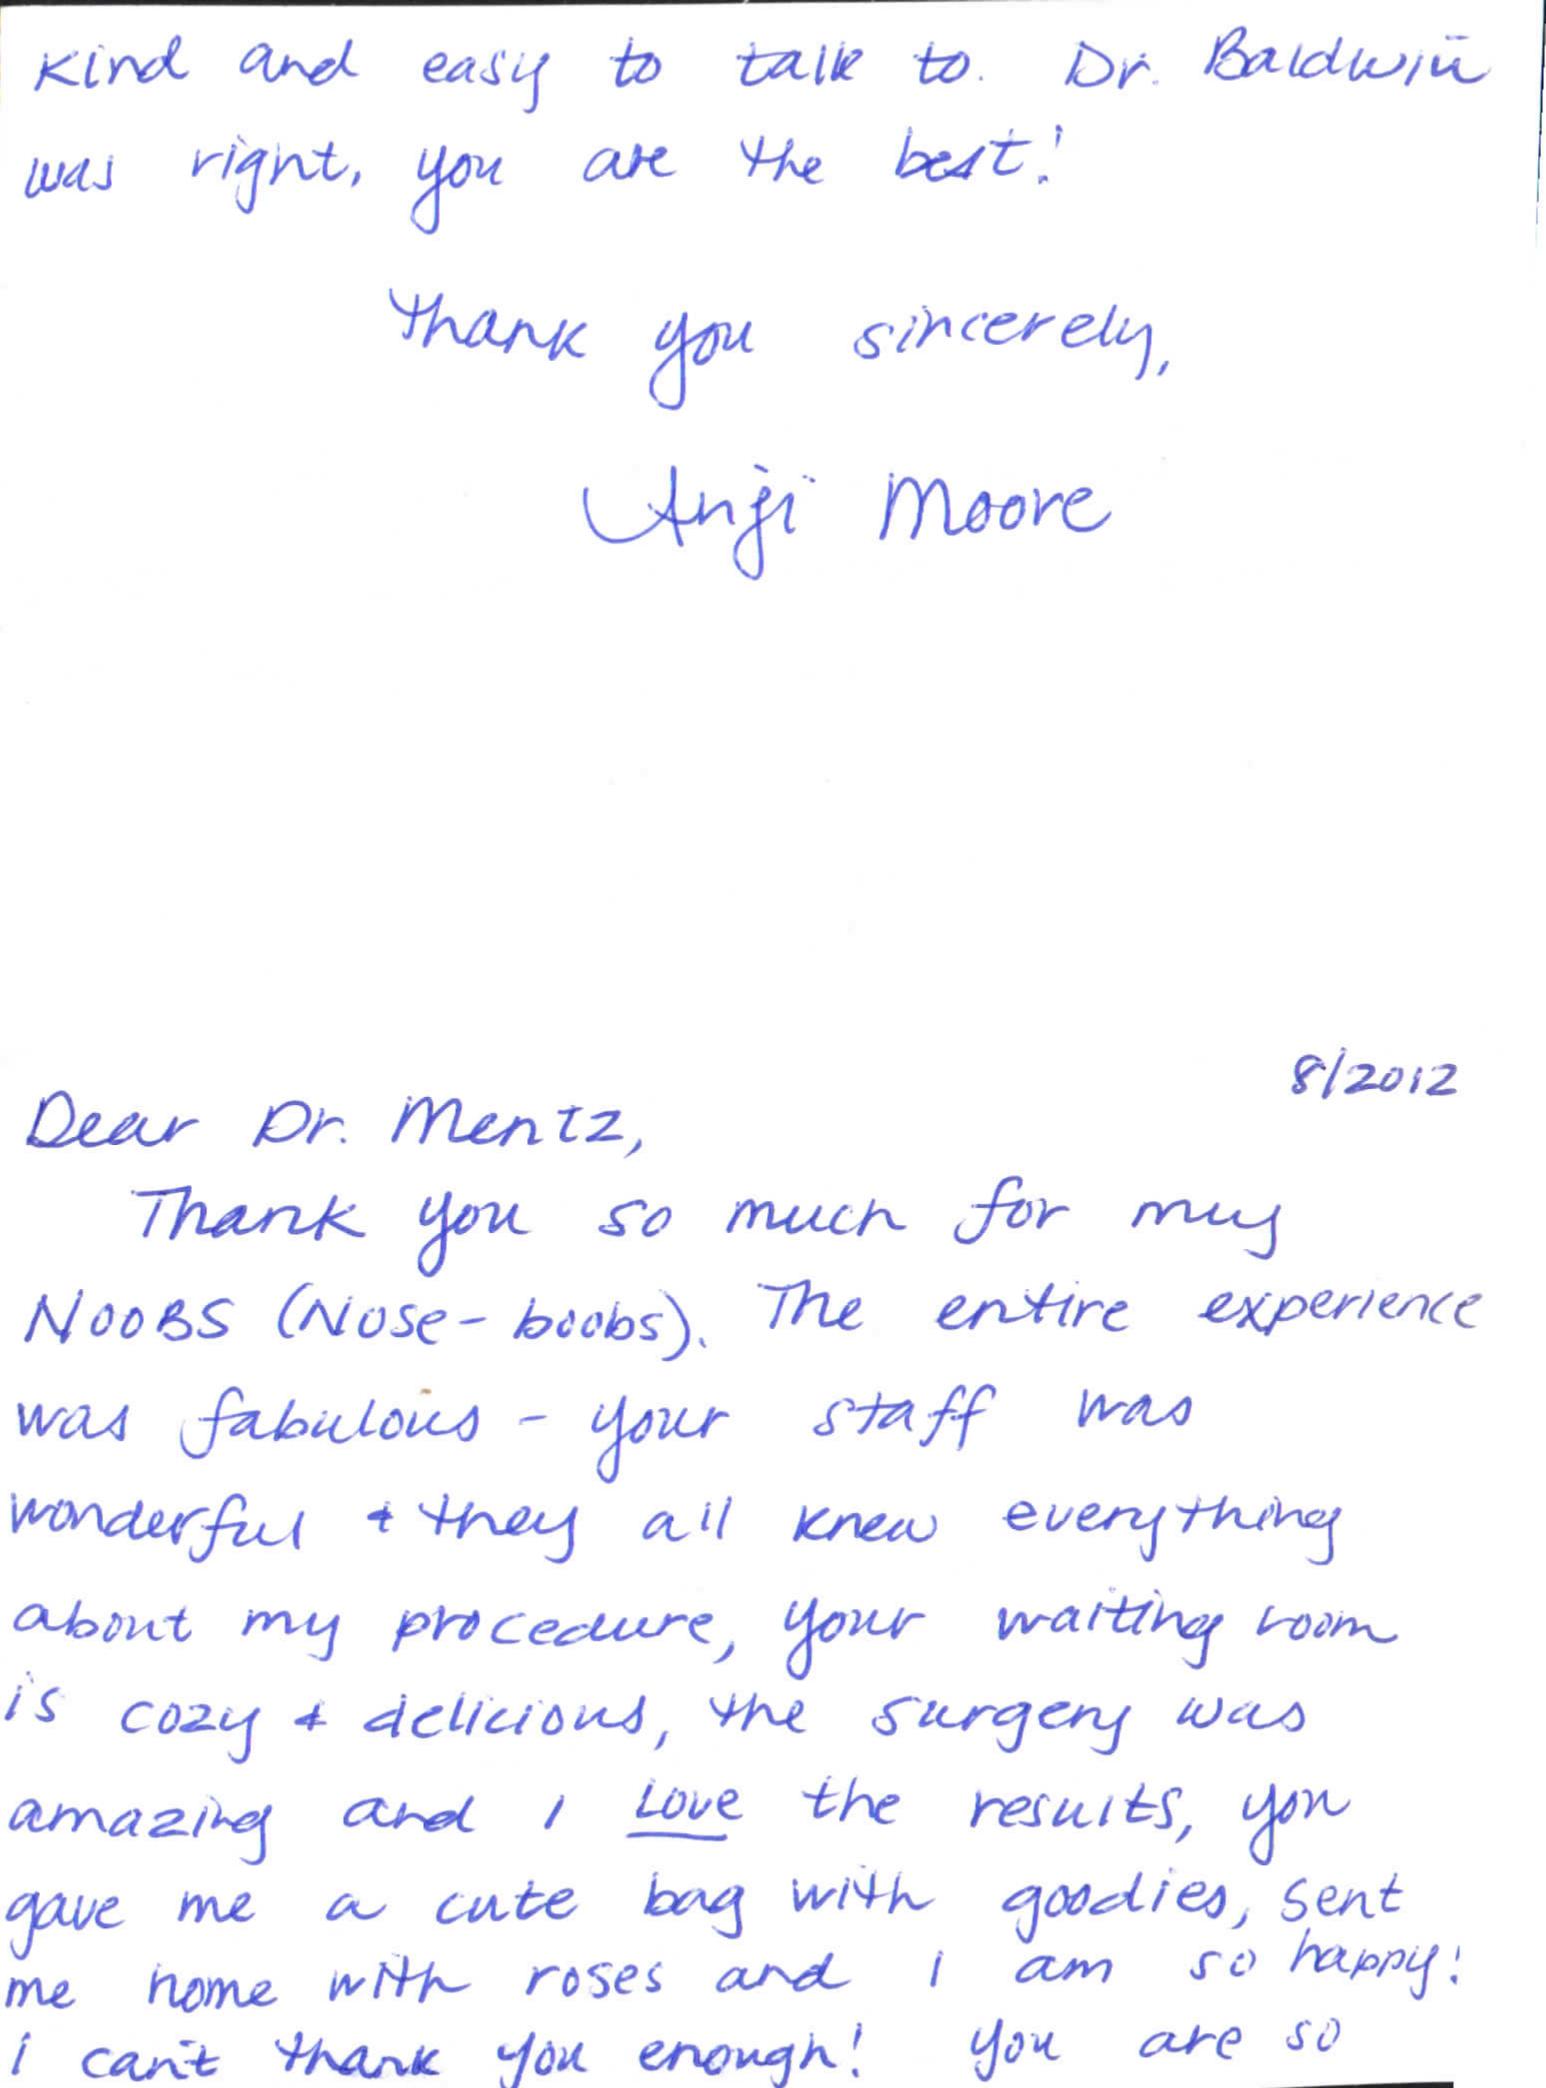 Kind and easy to talk to. Dr. Baldwin
was right, you are the best!
Thank you sincerely,
Anji Moore
8/2012
Dear Dr. Mentz,
Thank you so much for my
NOOBS (Nose-boobs). The entire experience
was fabulous - your staff was
wonderful & they all knew everything
about my procedure, your waiting room
is cozy & delicious, the surgery was
amazing and I Love the results, you
gave me a cute bag with goodies, sent
me home with roses and I am so happy!
I can't thank you enough! You are so